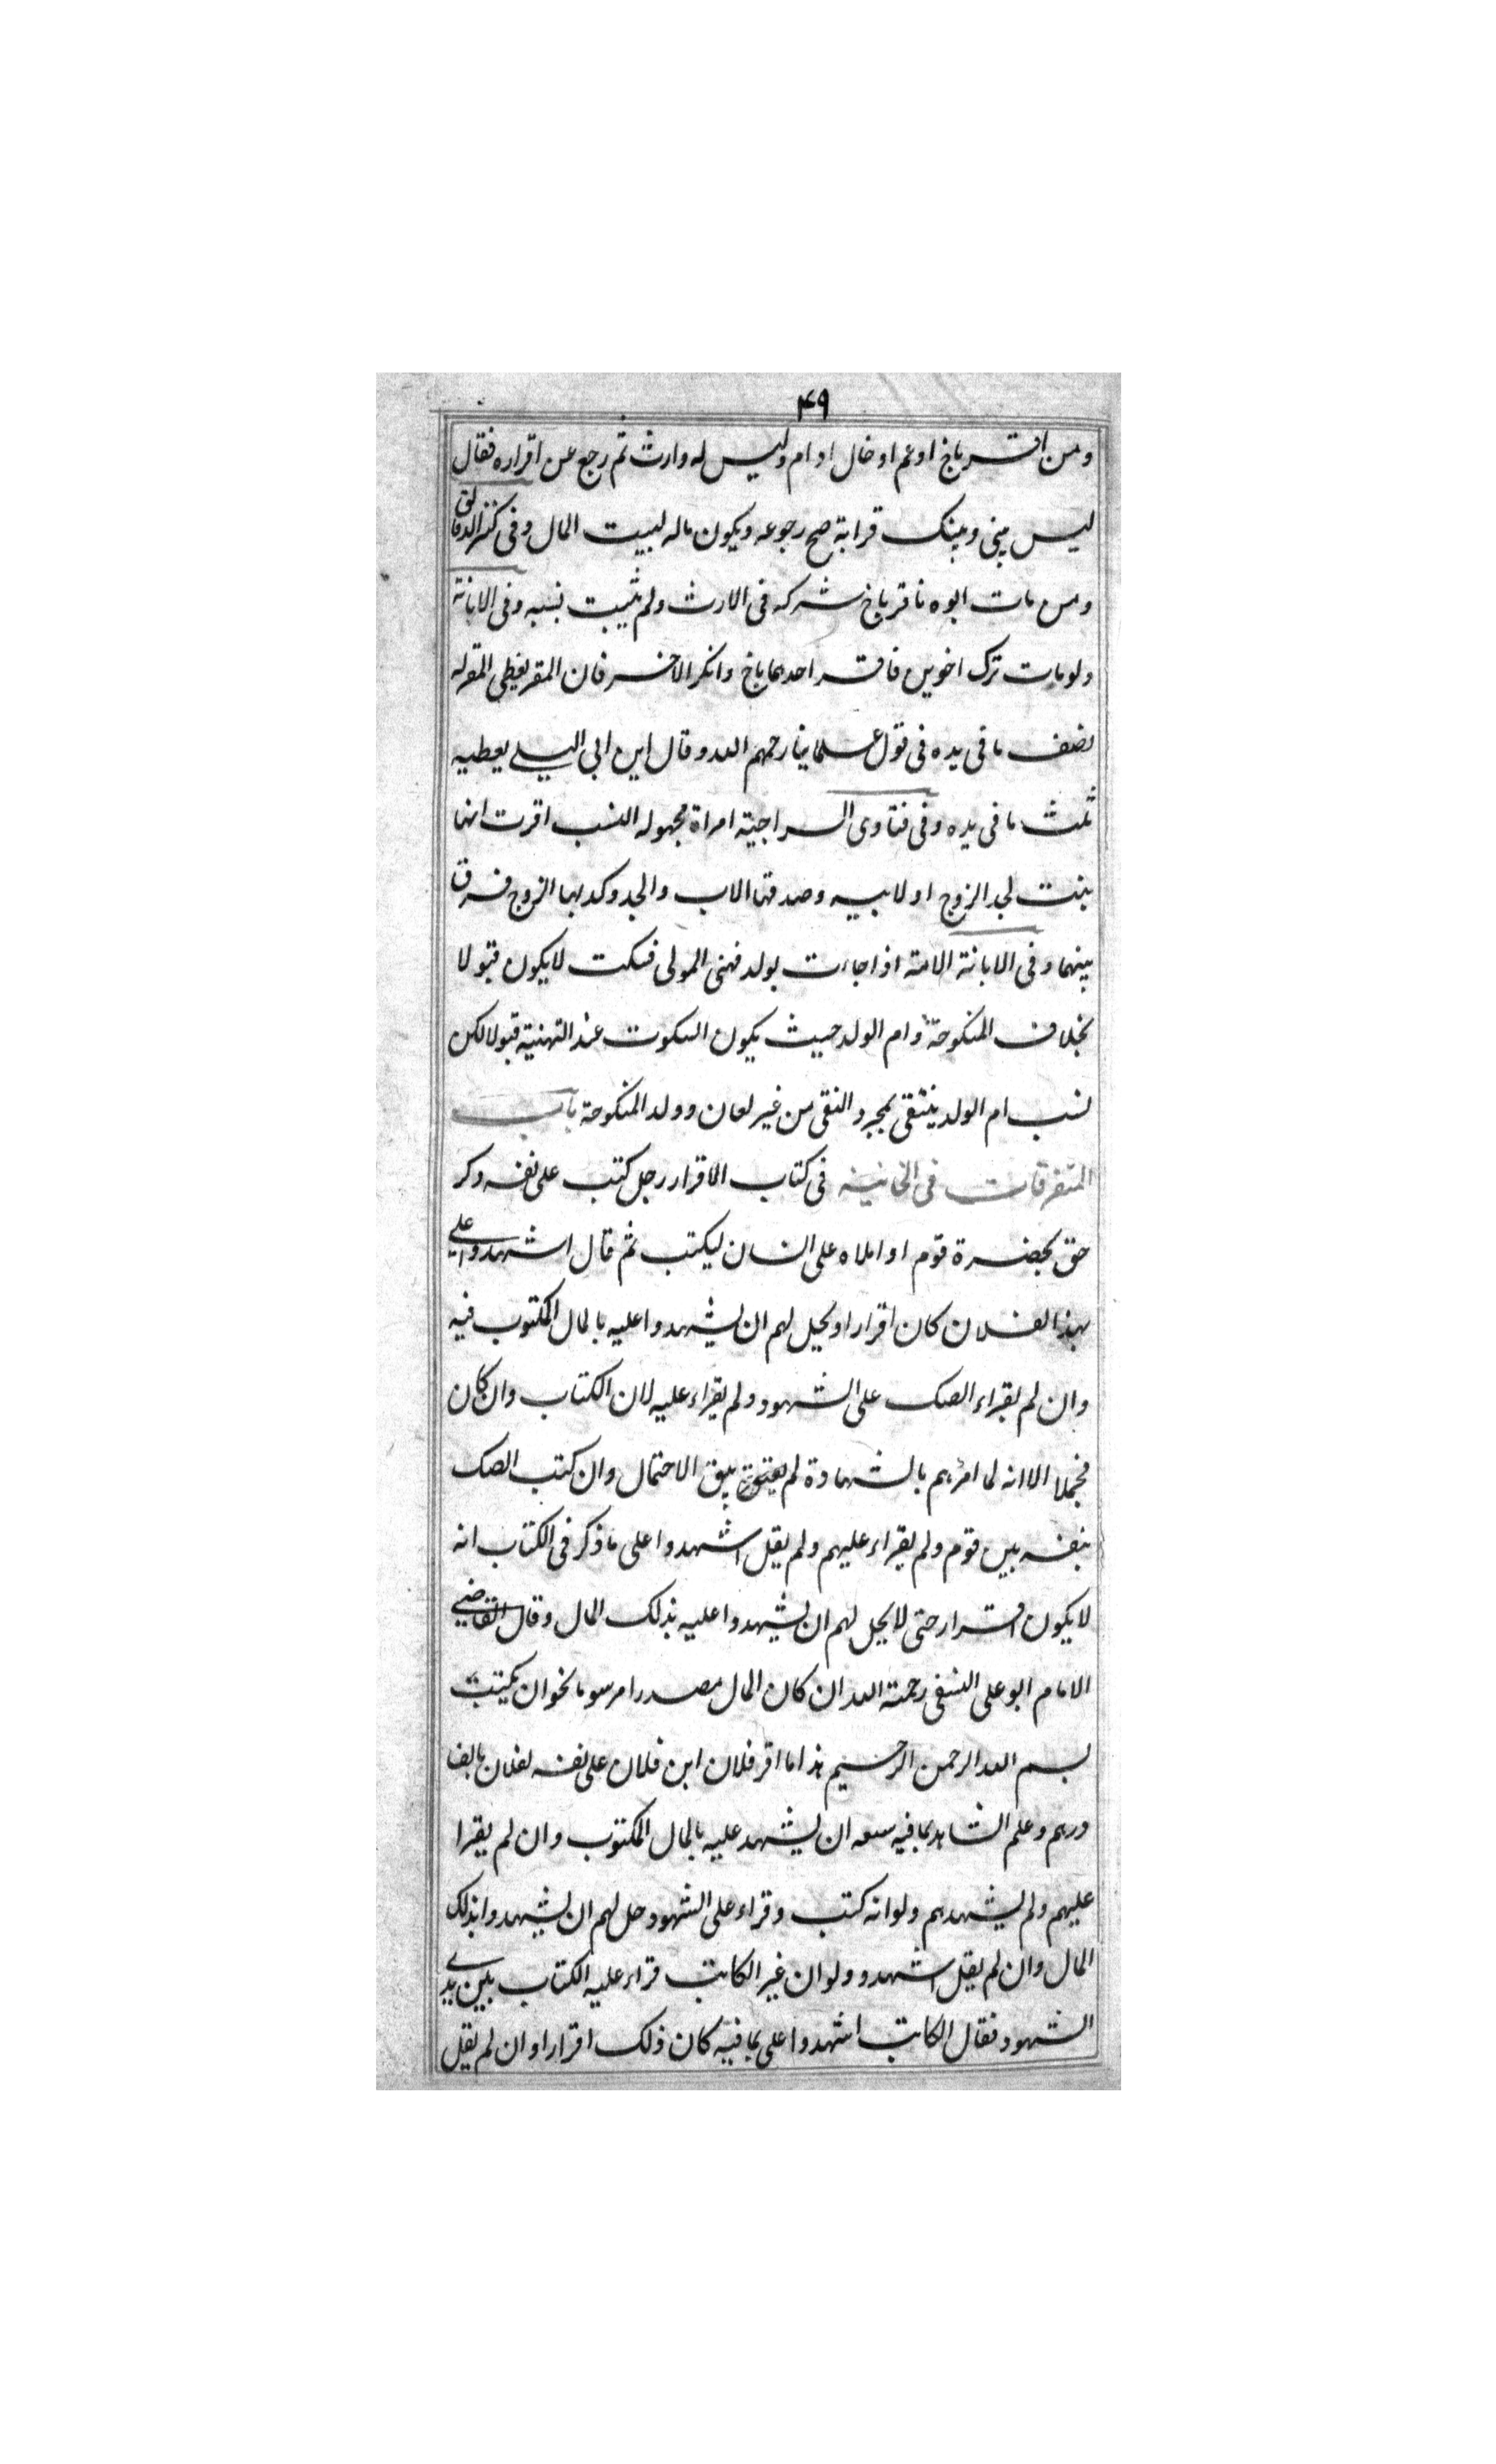 ۴۹
ومن اقر باخ او عم او خال او ام وليس له وارث ثم رجع عن اقراره فقال
ليس بيني وبينك قرابة صح رجوعه ويكون ماله لبيت المال وفى كنز الدقائق
ومن مات ابوه فاقر باخ شركه فى الارث ولم يثبت نسبه وفى الابانة
ولو مات ترك اخوين فاقر احدهما باخ وانكر الاخر فان المقر يعطى المقر له
نصف ما فى يده فى قول علمائنا رحمهم الله وقال ابن ابى اليلى يعطيه
ثلث ما فى يده وفى فتاوى السراجية امراة مجهوله النسب اقرت انها
بنت لجد الزوج او لابيه وصدقها الاب والجد وكذبها الزوج فرق
بينهما وفى الابانة الامة اذا جاءت بولد فهنى المولى فسكت لا يكون قبولا
بخلاف المنكوحة وام الولد حيث يكون السكوت عند التهنية قبولا لكن
نسب ام الولد ينتفى بمجرد النفى من غير لعان وولد المنكوحة باب
المتفرقات فى الخانية فى كتاب الاقرار رجل كتب على نفسه ذكر
حق بحضرة قوم او املاه على انسان ليكتب ثم قال اشهدوا على
بهذا لفلان كان اقرارا ويحل لهم ان يشهدوا عليه بالمال المكتوب فيه
وان لم يقراء الصك على الشهود ولم يقراء عليه لان الكتاب وان كان
مجملا الا انه لما امرهم بالشهادة لم يبق الاحتمال وان كتب الصك
بنفسه بين قوم ولم يقراء عليهم ولم يقل اشهدوا على ما ذكر فى الكتاب انه
لا يكون اقرار حتى لا يحل لهم ان يشهدوا عليه بذلك المال وقال القاضى
الامام ابو على النسفى رحمة الله ان كان المال مصدرا مرسوما نحو ان يكتب
بسم الله الرحمن الرحيم هذا ما اقر فلان ابن فلان على نفسه لفلان بالف
درهم وعلم الشاهد بما فيه سعه ان يشهد عليه بالمال المكتوب وان لم يقرا
عليهم ولم يشهدهم ولو انه كتب وقراء على الشهود حل لهم ان يشهدوا بذلك
المال وان لم يقل اشهدو ولو ان غير الكاتب قراء عليه الكتاب بين يدى
الشهود فقال الكاتب اشهدوا على بما فيه كان ذلك اقرارا وان لم يقل